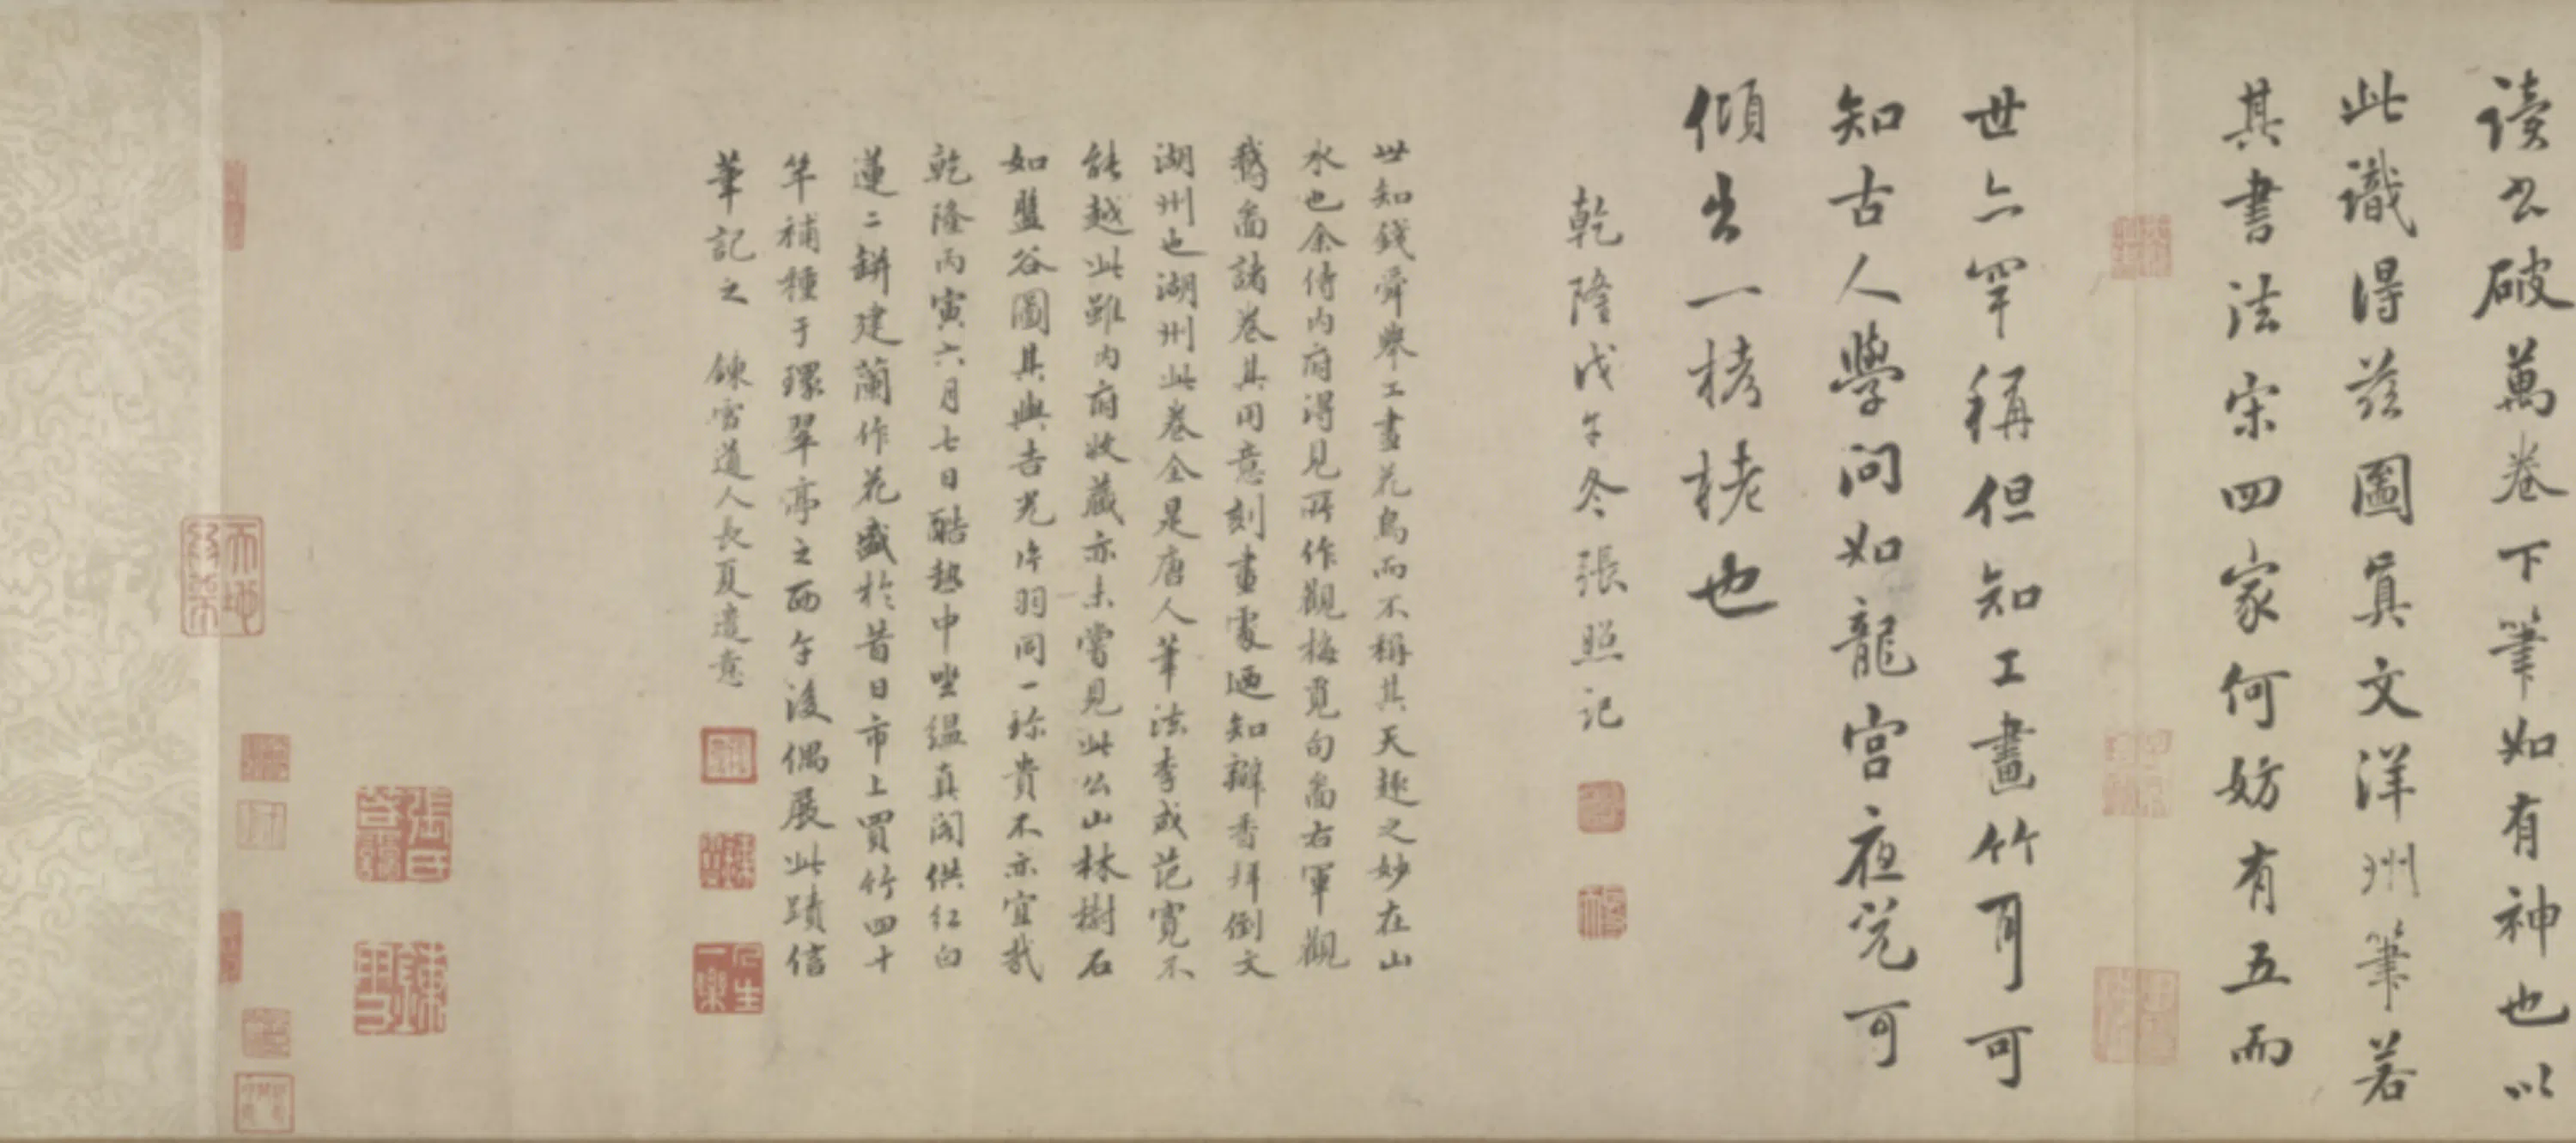 读书破萬卷下筆如有神也以
此識得茲圖真文洋州筆若
其書法宋四家何妨有五而
世亦罕稱但知工畫竹可
知古人學問如龍宫夜光可
傾出一栲栳也
乾隆戊午冬張照記
世知錢舜舉工畫花鳥而不稱其天趣之妙在山
水也余侍内府得見所作觀梅覓句啚右軍觀
鵝啚諸卷其用意刻畫處迺知瓣香拜倒文
湖州也湖州此卷全是唐人筆法李成范寬不
能越此雖内府收藏亦未嘗見此公山林樹石
如盤谷圖其與吉光片羽同一珍貴不亦宜哉
乾隆丙寅六月七日酷熱中坐緼真閣供红白
蓮二缾建蘭作花盛於昔日市上買竹四十
竿補種于環翠亭之西午後偶展此蹟信
筆記之 鍊雪道人長夏遣意
人生一樂